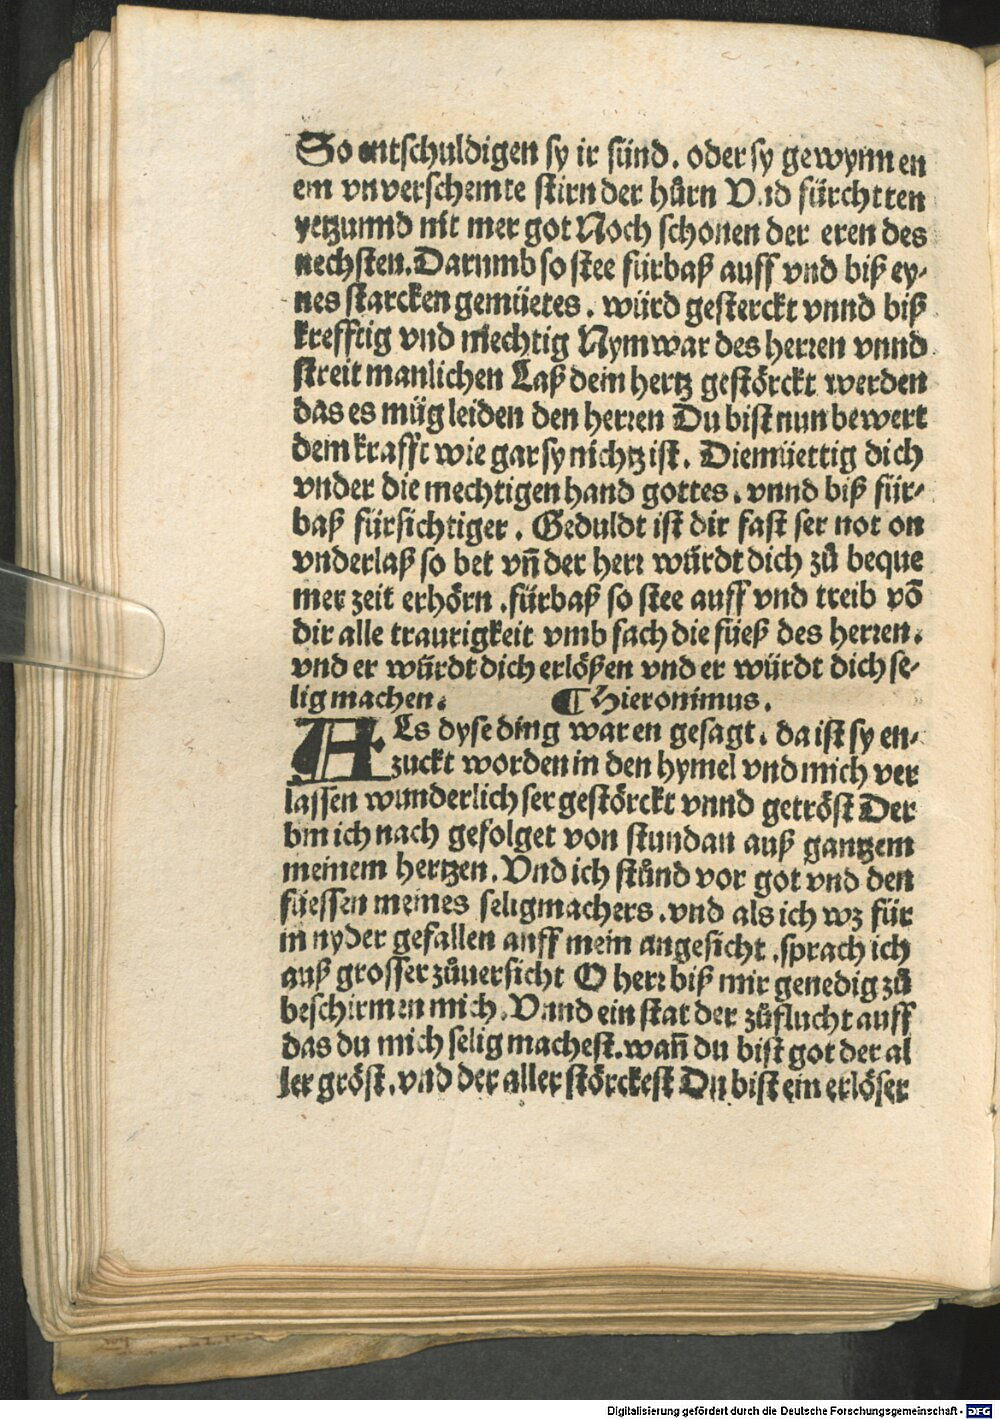 So entschuldigen sy ir sünd. oder sy gewynnen
ein vnverschemte stirn der hůrn Vnd fürchtten
yetzunnd nit mer got Noch schonen der eren des
nechsten. Darumb so stee fürbaß auff vnd biß ey-
nes starcken gemüetes. würd gesterckt vnnd biß
krefftig vnd mechtig Nym war des herren vnnd
streit manlichen Laß dein hertz gestörckt werden
das es müg leiden den herren Du bist nun bewert
dein krafft wie gar sy nichtz ist. Diemüettig dich
vnder die mechtigen hand gottes. vnnd biß für-
baß fürsichtiger. Geduldt ist dir fast ser not on
vnderlaß so bet vn̄ der herr würdt dich zů beque
mer zeit erhörn. fürbaß so stee auff vnd treib vō
dir alle traurigkeit vmb fach die füeß des herren.
vnd er würdt dich erlößen vnd er würdt dich se-
lig machen. ¶ Hieronimus.
ALs dyse ding waren gesagt. da ist sy en-
zuckt worden in den hymel vnd mich ver
lassen wunderlich ser gestörckt vnnd getröst Der
bin ich nach gefolget von stundan auß gantzem
meinem hertzen. Vnd ich stůnd vor got vnd den
füessen meines seligmachers. vnd als ich wz für
in nyder gefallen auff mein angesicht. sprach ich
auß grosser zůuersicht O herr biß mir genedig zů
beschirmen mich. Vnnd ein stat der zůflucht auff
das du mich selig machest. wan̄ du bist got der al
ler gröst. vnd der aller störckest Du bist ein erlöser
Digitalisierung gefördert durch die Deutsche Forschungsgemeinschaft - DFG